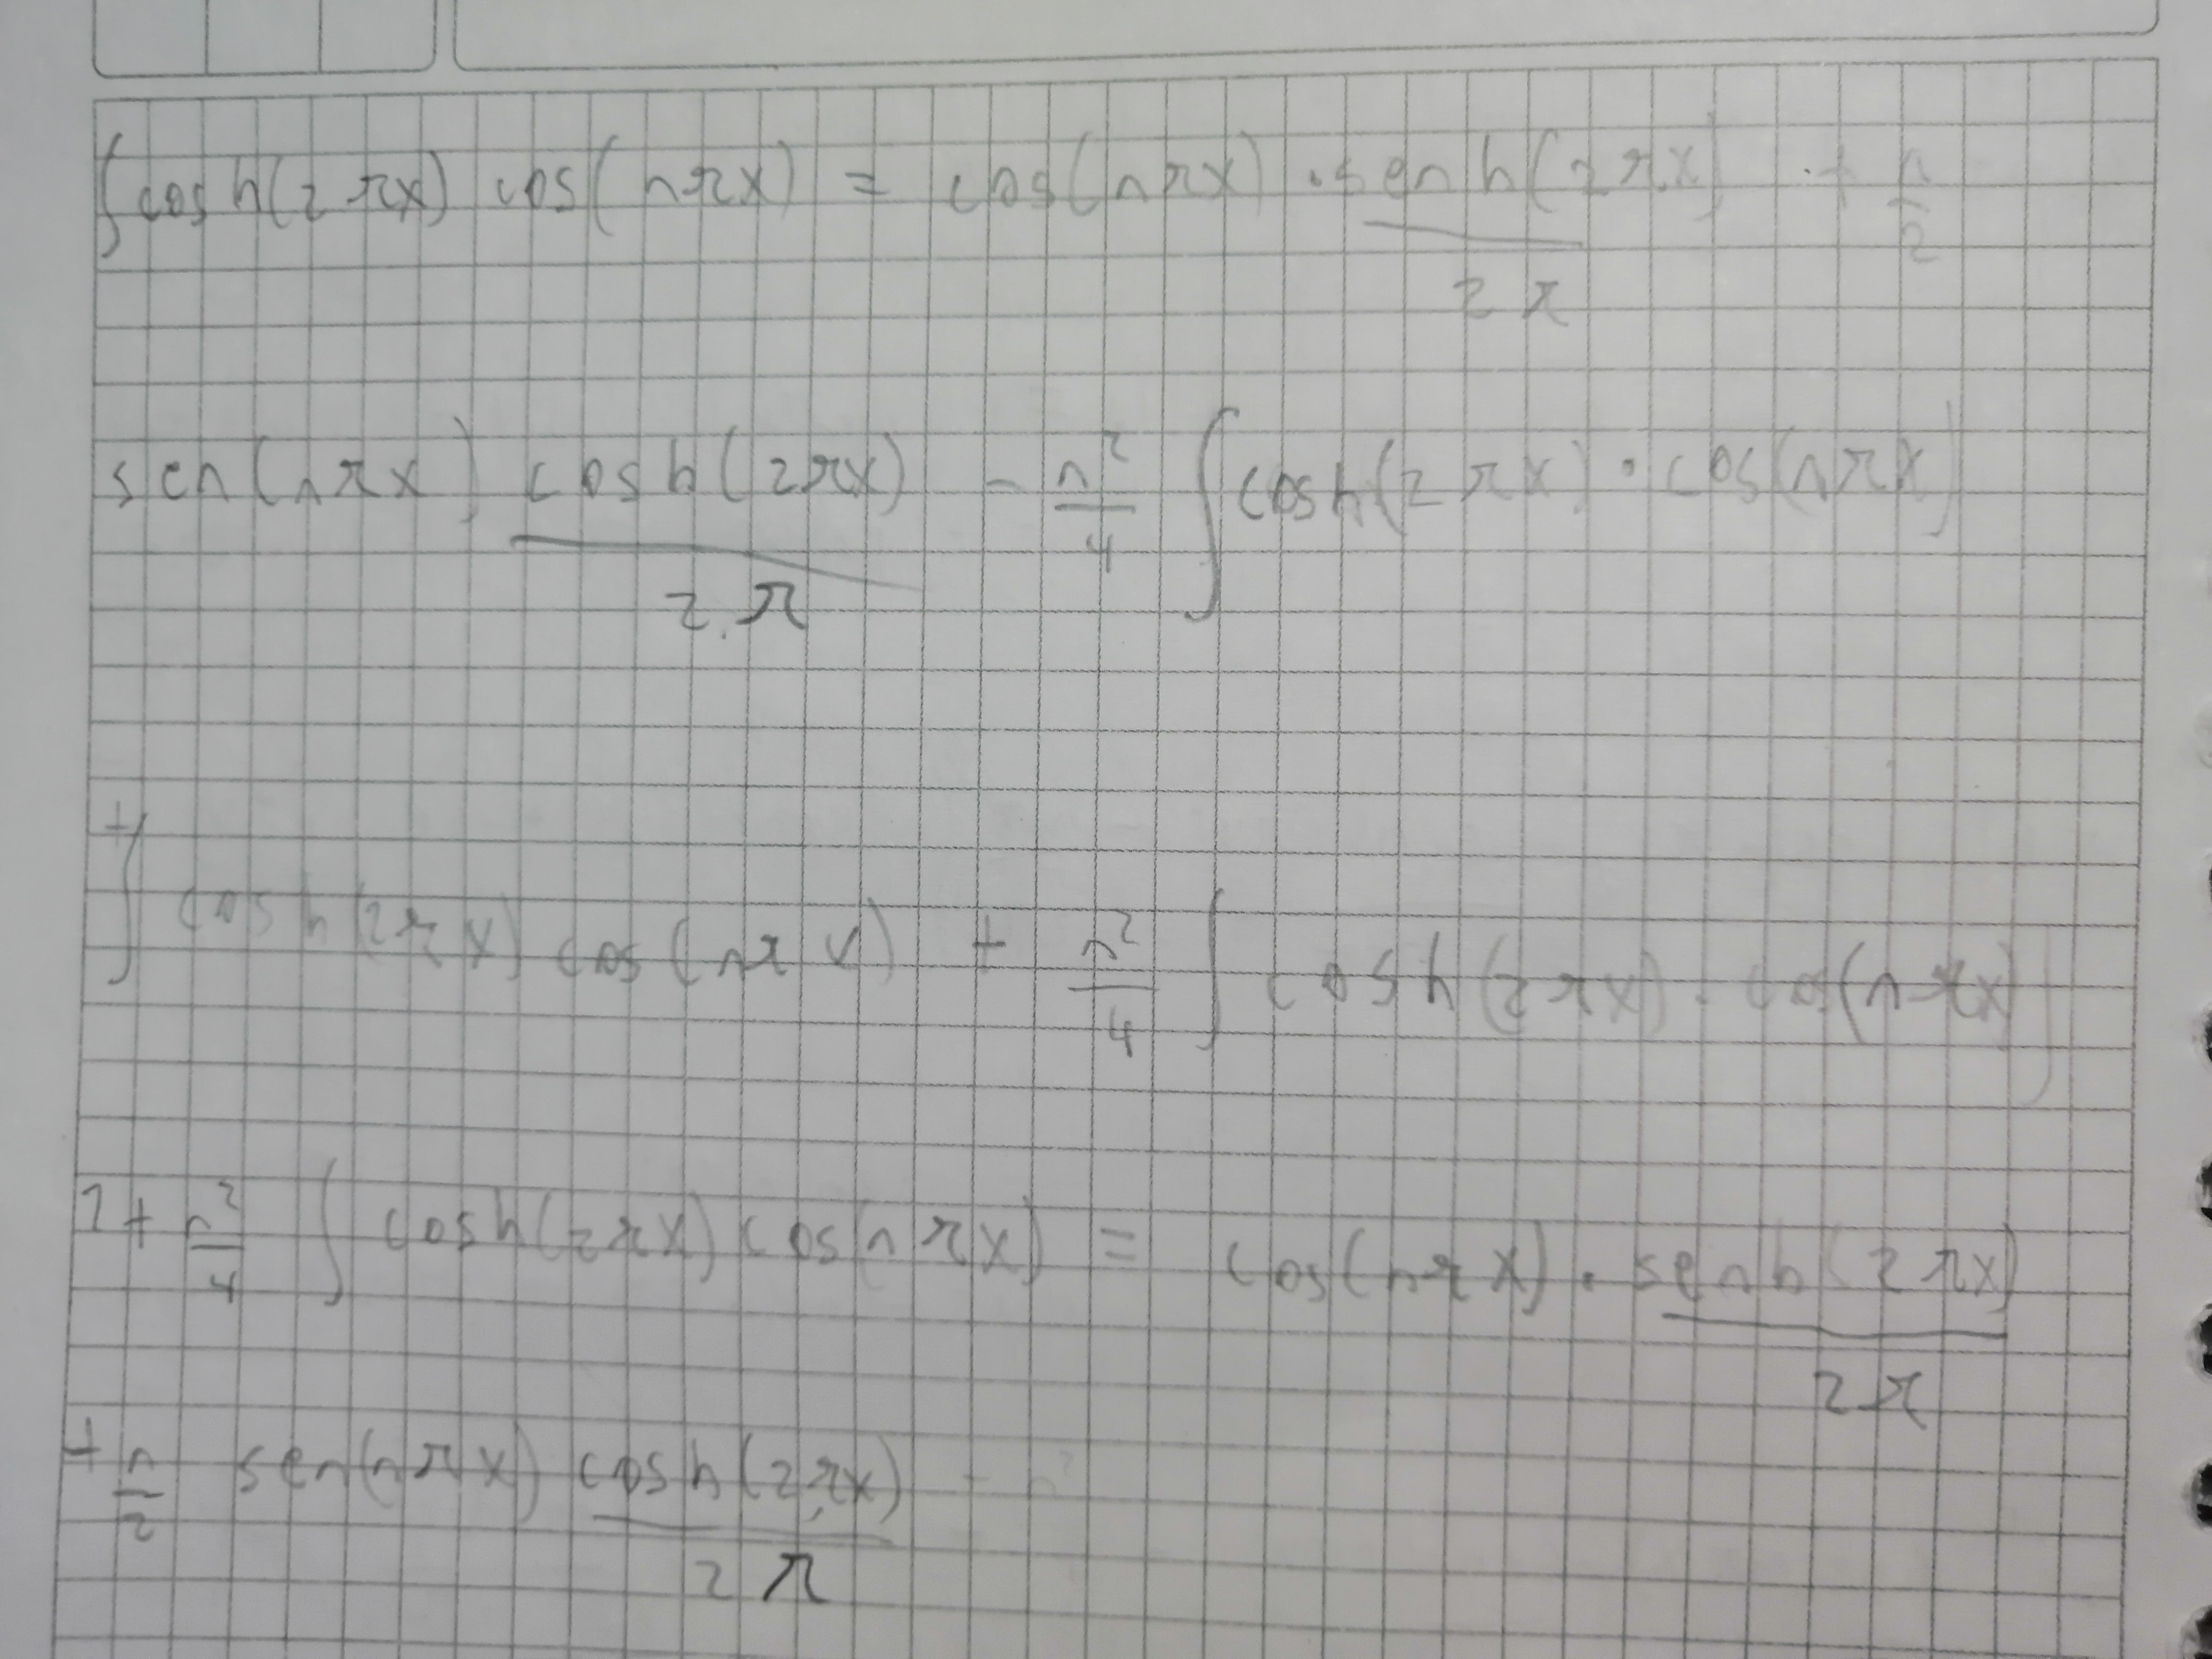 ∫cosh(2πx) cos(nπx) = cos(nπx) · senh(2πx)/2π · + n/2
sen(nπx) cosh(2πx)/2π - n²/4 ∫cosh(2πx) · cos(nπx)
+∫ cosh(2πx) cos(nπx) + n²/4 ∫ cosh(2πx) · cos(nπx)
1 + n²/4 ∫ cosh(2πx) cos(nπx) = cos(nπx) · senh(2πx)/2π
+ n/2 sen(nπx) cosh(2πx)/2π